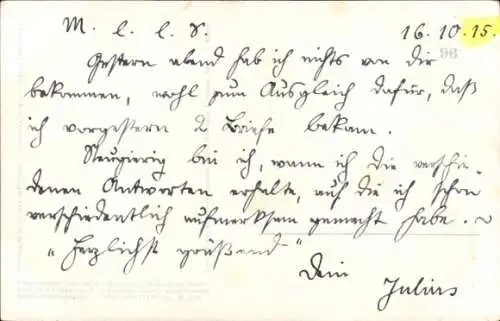 M. l. l. S. 16.10.15.
96
Gestern abend hab ich nichts von dir
bekommen, wohl zum Ausgleich dafür, daß
ich vorgestern 2 Briefe bekam.
Neugierig bin ich, wann ich die verschie-
denen Antworten erhalte, auf die ich schon
verschiedentlich aufmerksam gemacht habe.
"Herzlichst grüßend"
Dein
Julius